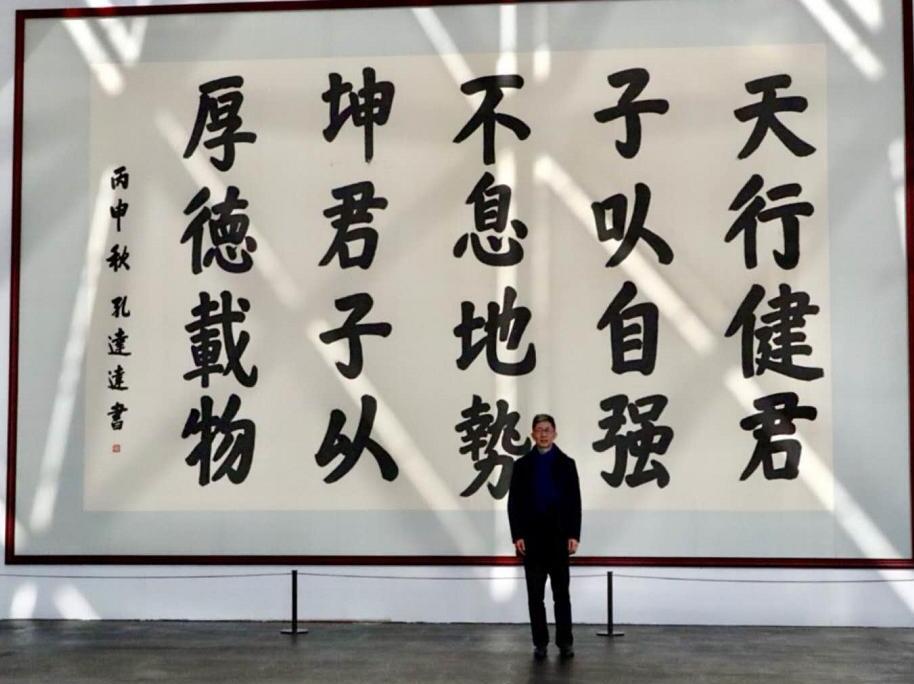 天行健君
子以自强
不息地势
坤君子以
厚德載物
丙申秋 孔達達書